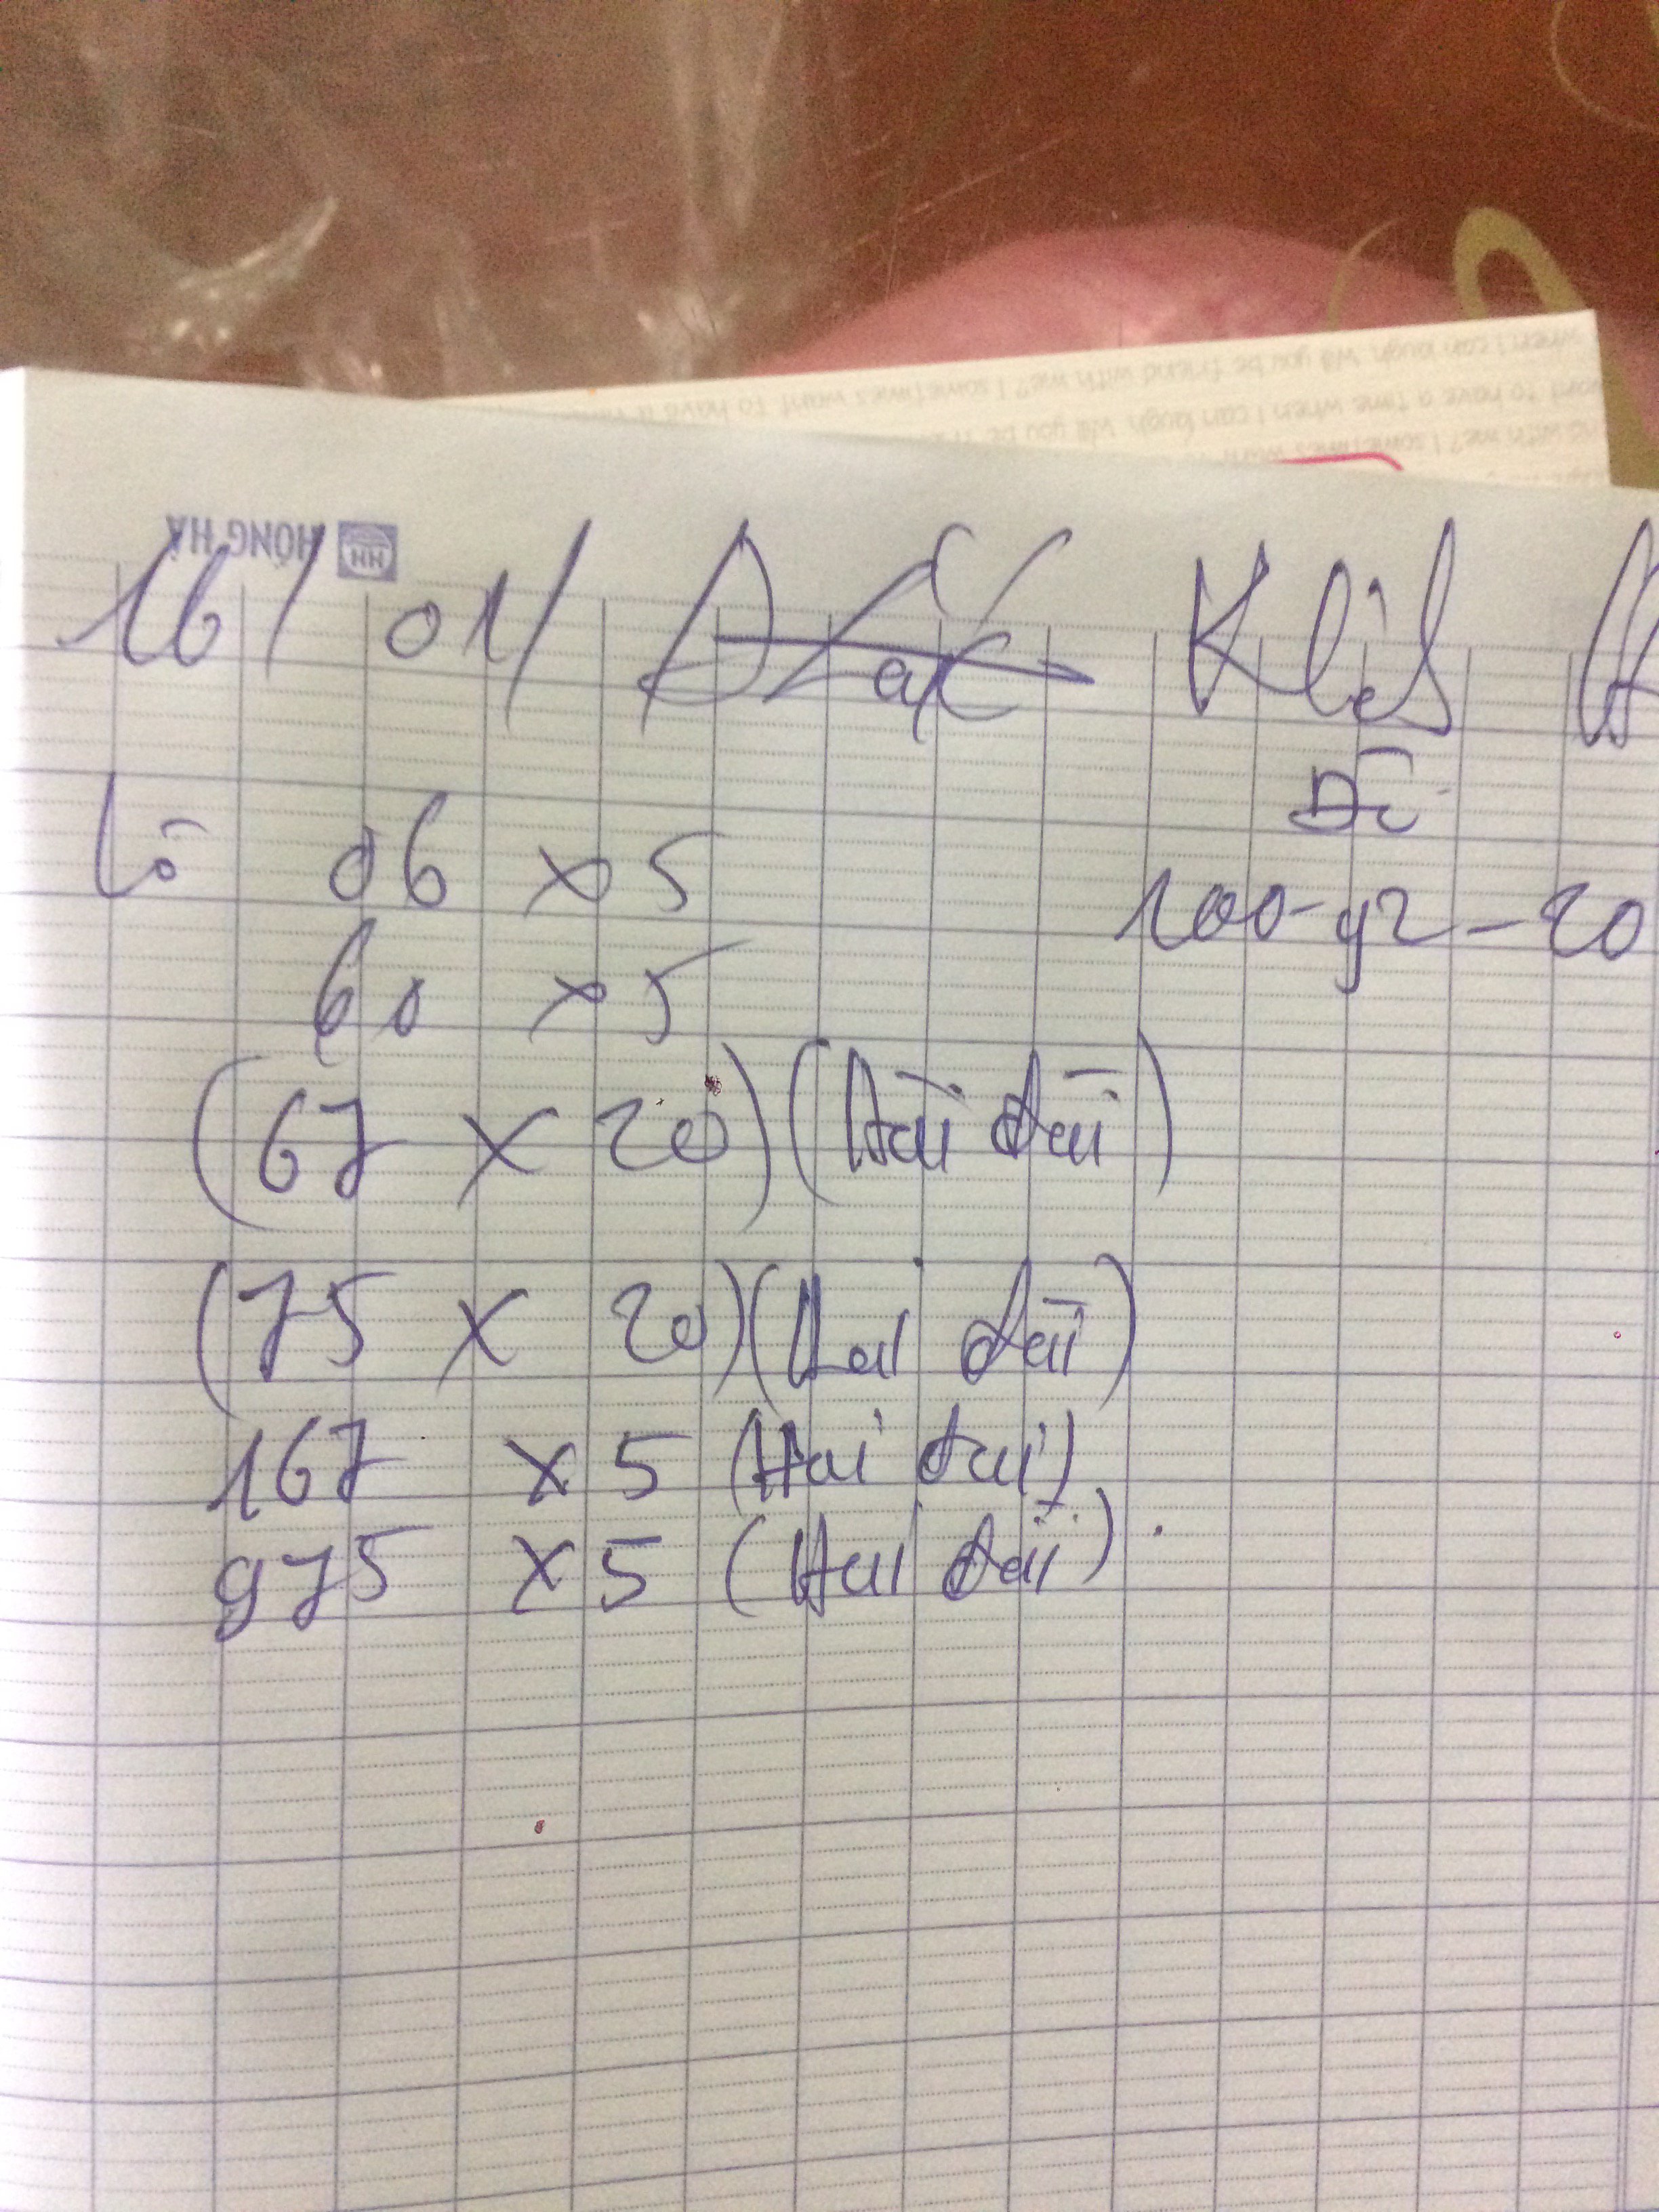 when I can laugh. Will you be friend with me? I sometimes want to have a
want to have a time when I can laugh. Will you be
with me? I sometimes want
HỒNG HÀ
HH
16/01/
lô 06 x 5
60 x 5
(67 x 20) (Hai đài)
(75 x 20) (Hai đài)
167 x 5 (Hai đài)
975 x 5 (Hai đài).
100-92-20